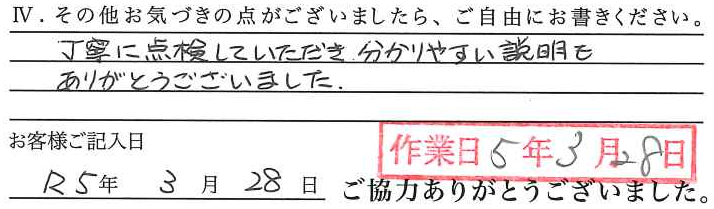 Ⅳ．その他お気づきの点がございましたら、ご自由にお書きください。
丁寧に点検していただき 分かりやすい説明も
ありがとうございました.
お客様ご記入日
作業日 5年3月28日
R5年 3月 28日 ご協力ありがとうございました。